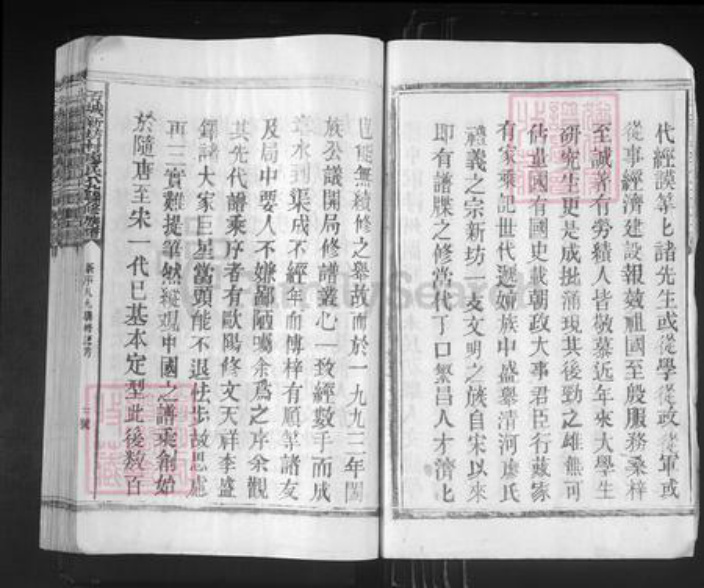 代經謨等匕諸先生或從學從政從軍或
從事經濟建設報效祖國至殷服務桑梓
至誠著有勞績人皆敬慕近年來大學生
研究生更是成批涌現其後勁之雄無可
估量國有國史載朝政大事君臣行藏家
有家乘記世代遞嬗族中盛舉清河 氏
禮義之宗新坊一支文明之族自宋以來
即有譜牒之修當代丁口繁昌人才濟匕
也能無續修之舉故而於一九九三年闔
族公議開局修譜叢心一致經數手而成
水到渠成不經年而傳梓有順等諸友
及局中要人不嫌鄙陋囑余為之序余觀
其先代譜乘序者有歐陽修文天祥李盛
鐸諸大家巨星當頭能不退怯步故思慮
再三實難提筆然縱觀中國之譜乘創始
於隨唐至宋一代已基本定型此後数百
新坊村 氏 修族譜
FamilySearch